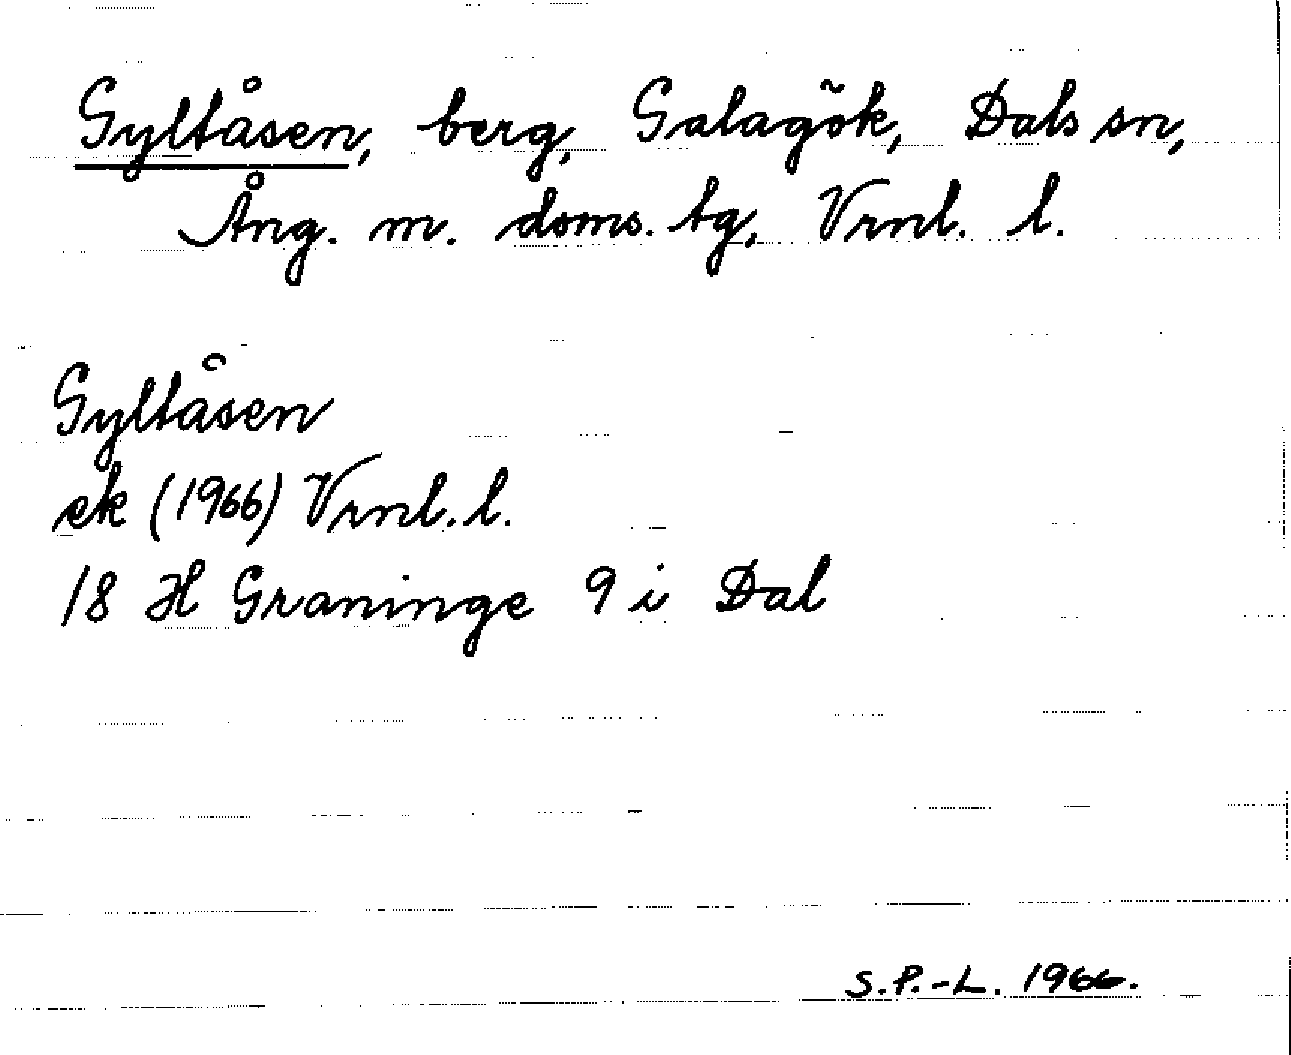 Gyltåsen, berg, Galagök, Dals sn,
Ång. m. doms. tg, Vrnl. l.
Gyltåsen
ek (1966) Vrnl. l.
18 H Graninge 9 i Dal
S.P.-L. 1966.